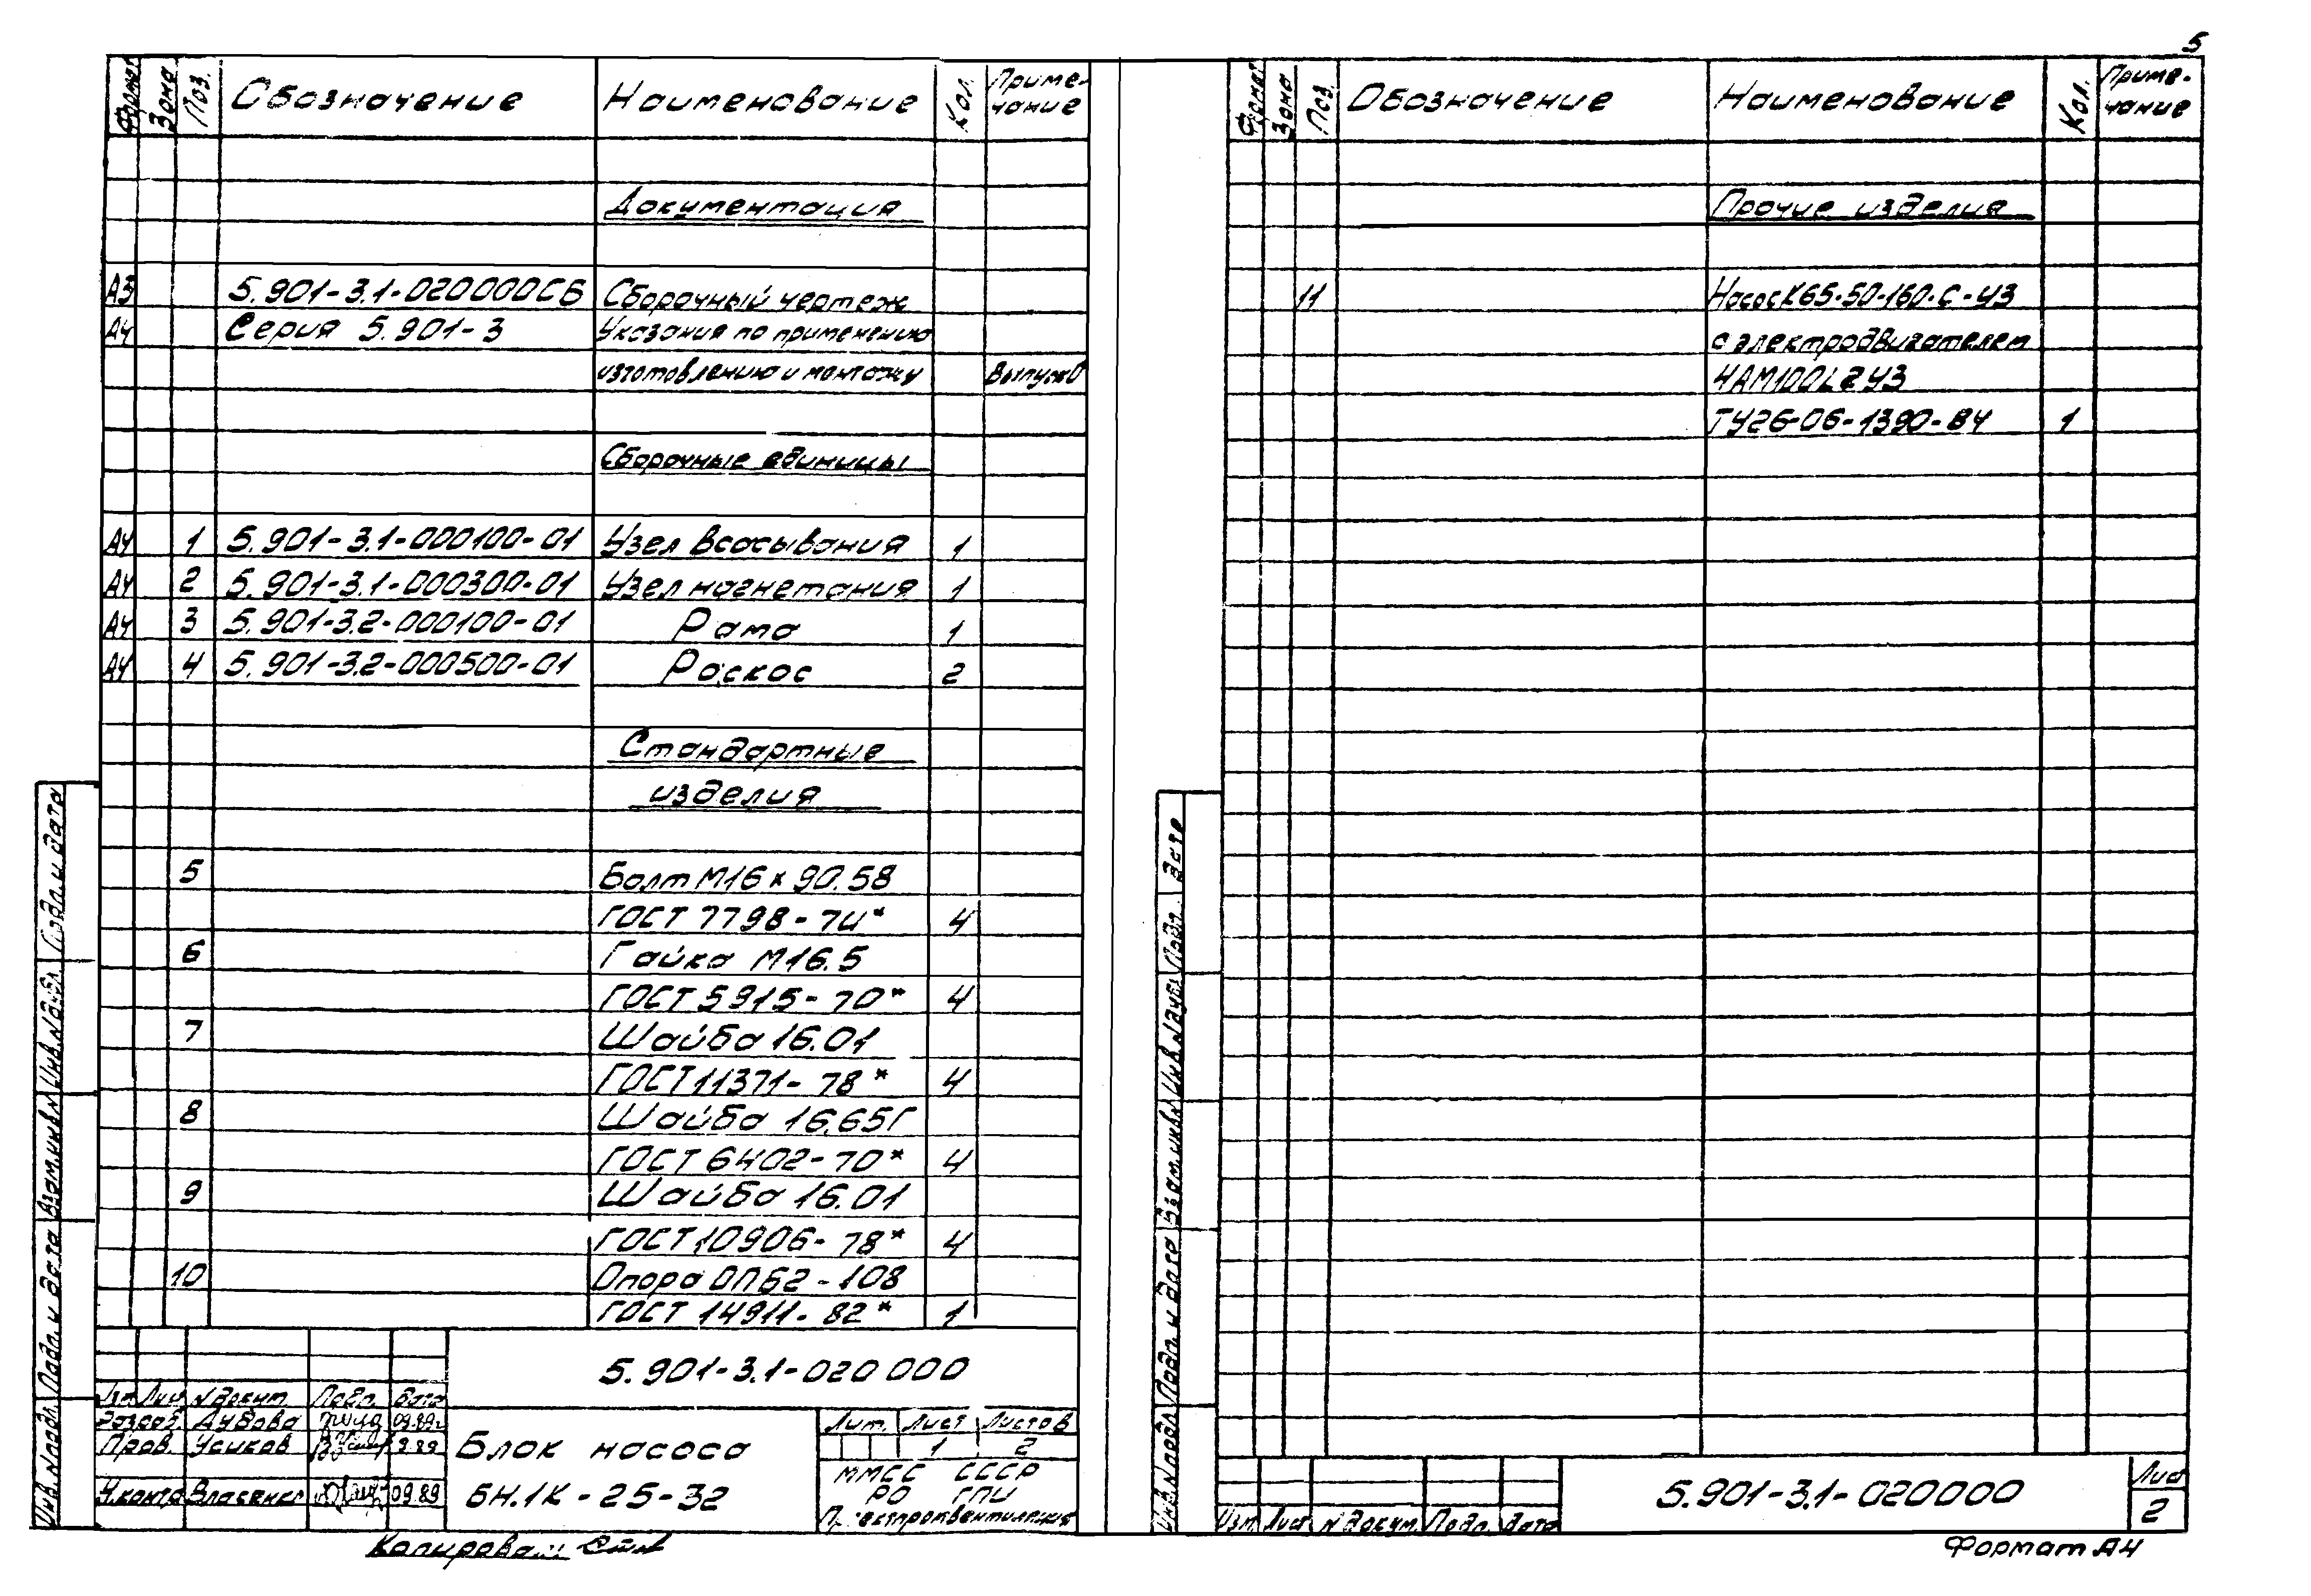 5
Формат Зона Поз. Обозначение Наименование Кол. Приме-чание
Документация
А3 5.901-3.1-020000СБ Сборочный чертеж
А4 Серия 5.901-3 Указания по применению
изготовлению и монтажу Выпуск 0
Сборочные единицы
А4 1 5.901-3.1-000100-01 Узел всасывания 1
А4 2 5.901-3.1-000300-01 Узел нагнетания 1
А4 3 5.901-3.2-000100-01 Рама 1
А4 4 5.901-3.2-000500-01 Раскос 2
Стандартные
изделия
5 Болт М16 х 90.58
ГОСТ 7798-74* 4
6 Гайка М16.5
ГОСТ 5915-70* 4
7 Шайба 16.01
ГОСТ 11371-78* 4
8 Шайба 16.65Г
ГОСТ 6402-70* 4
9 Шайба 16.01
ГОСТ 10906-78* 4
10 Опора ОПБ2-108
ГОСТ 14911-82* 1
5.901-3.1-020 000
Изм. Лист N докум. Подп. Дата
Разраб. Дудова 09.89г
Пров. Усиков 9.89
Н.контр. Власенко 09.89
Блок насоса
БН.1К-25-32
Лит. Лист Листов
1 2
ММСС СССР
РО ГПИ
Проектпромвентиляция
Инв. N подл. Подп. и дата Взам. инв. N Инв. N дубл. Подп. и дата
Копировал
Формат Зона Поз. Обозначение Наименование Кол. Приме-чание
Прочие изделия
11 Насос К65-50-160-С-У3
с электродвигателем
4АМ100L2У3
ТУ26-06-1390-84 1
Инв. N подл. Подп. и дата Взам. инв. N Инв. N дубл. Подп. дата
Изм. Лист N докум. Подп. Дата
5.901-3.1-020000
Лист
2
Формат А4